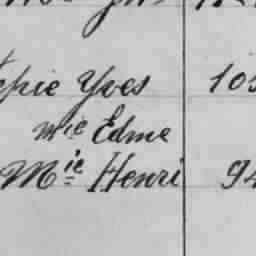 pie Yves 105
mie Edme
Mie Henri 94